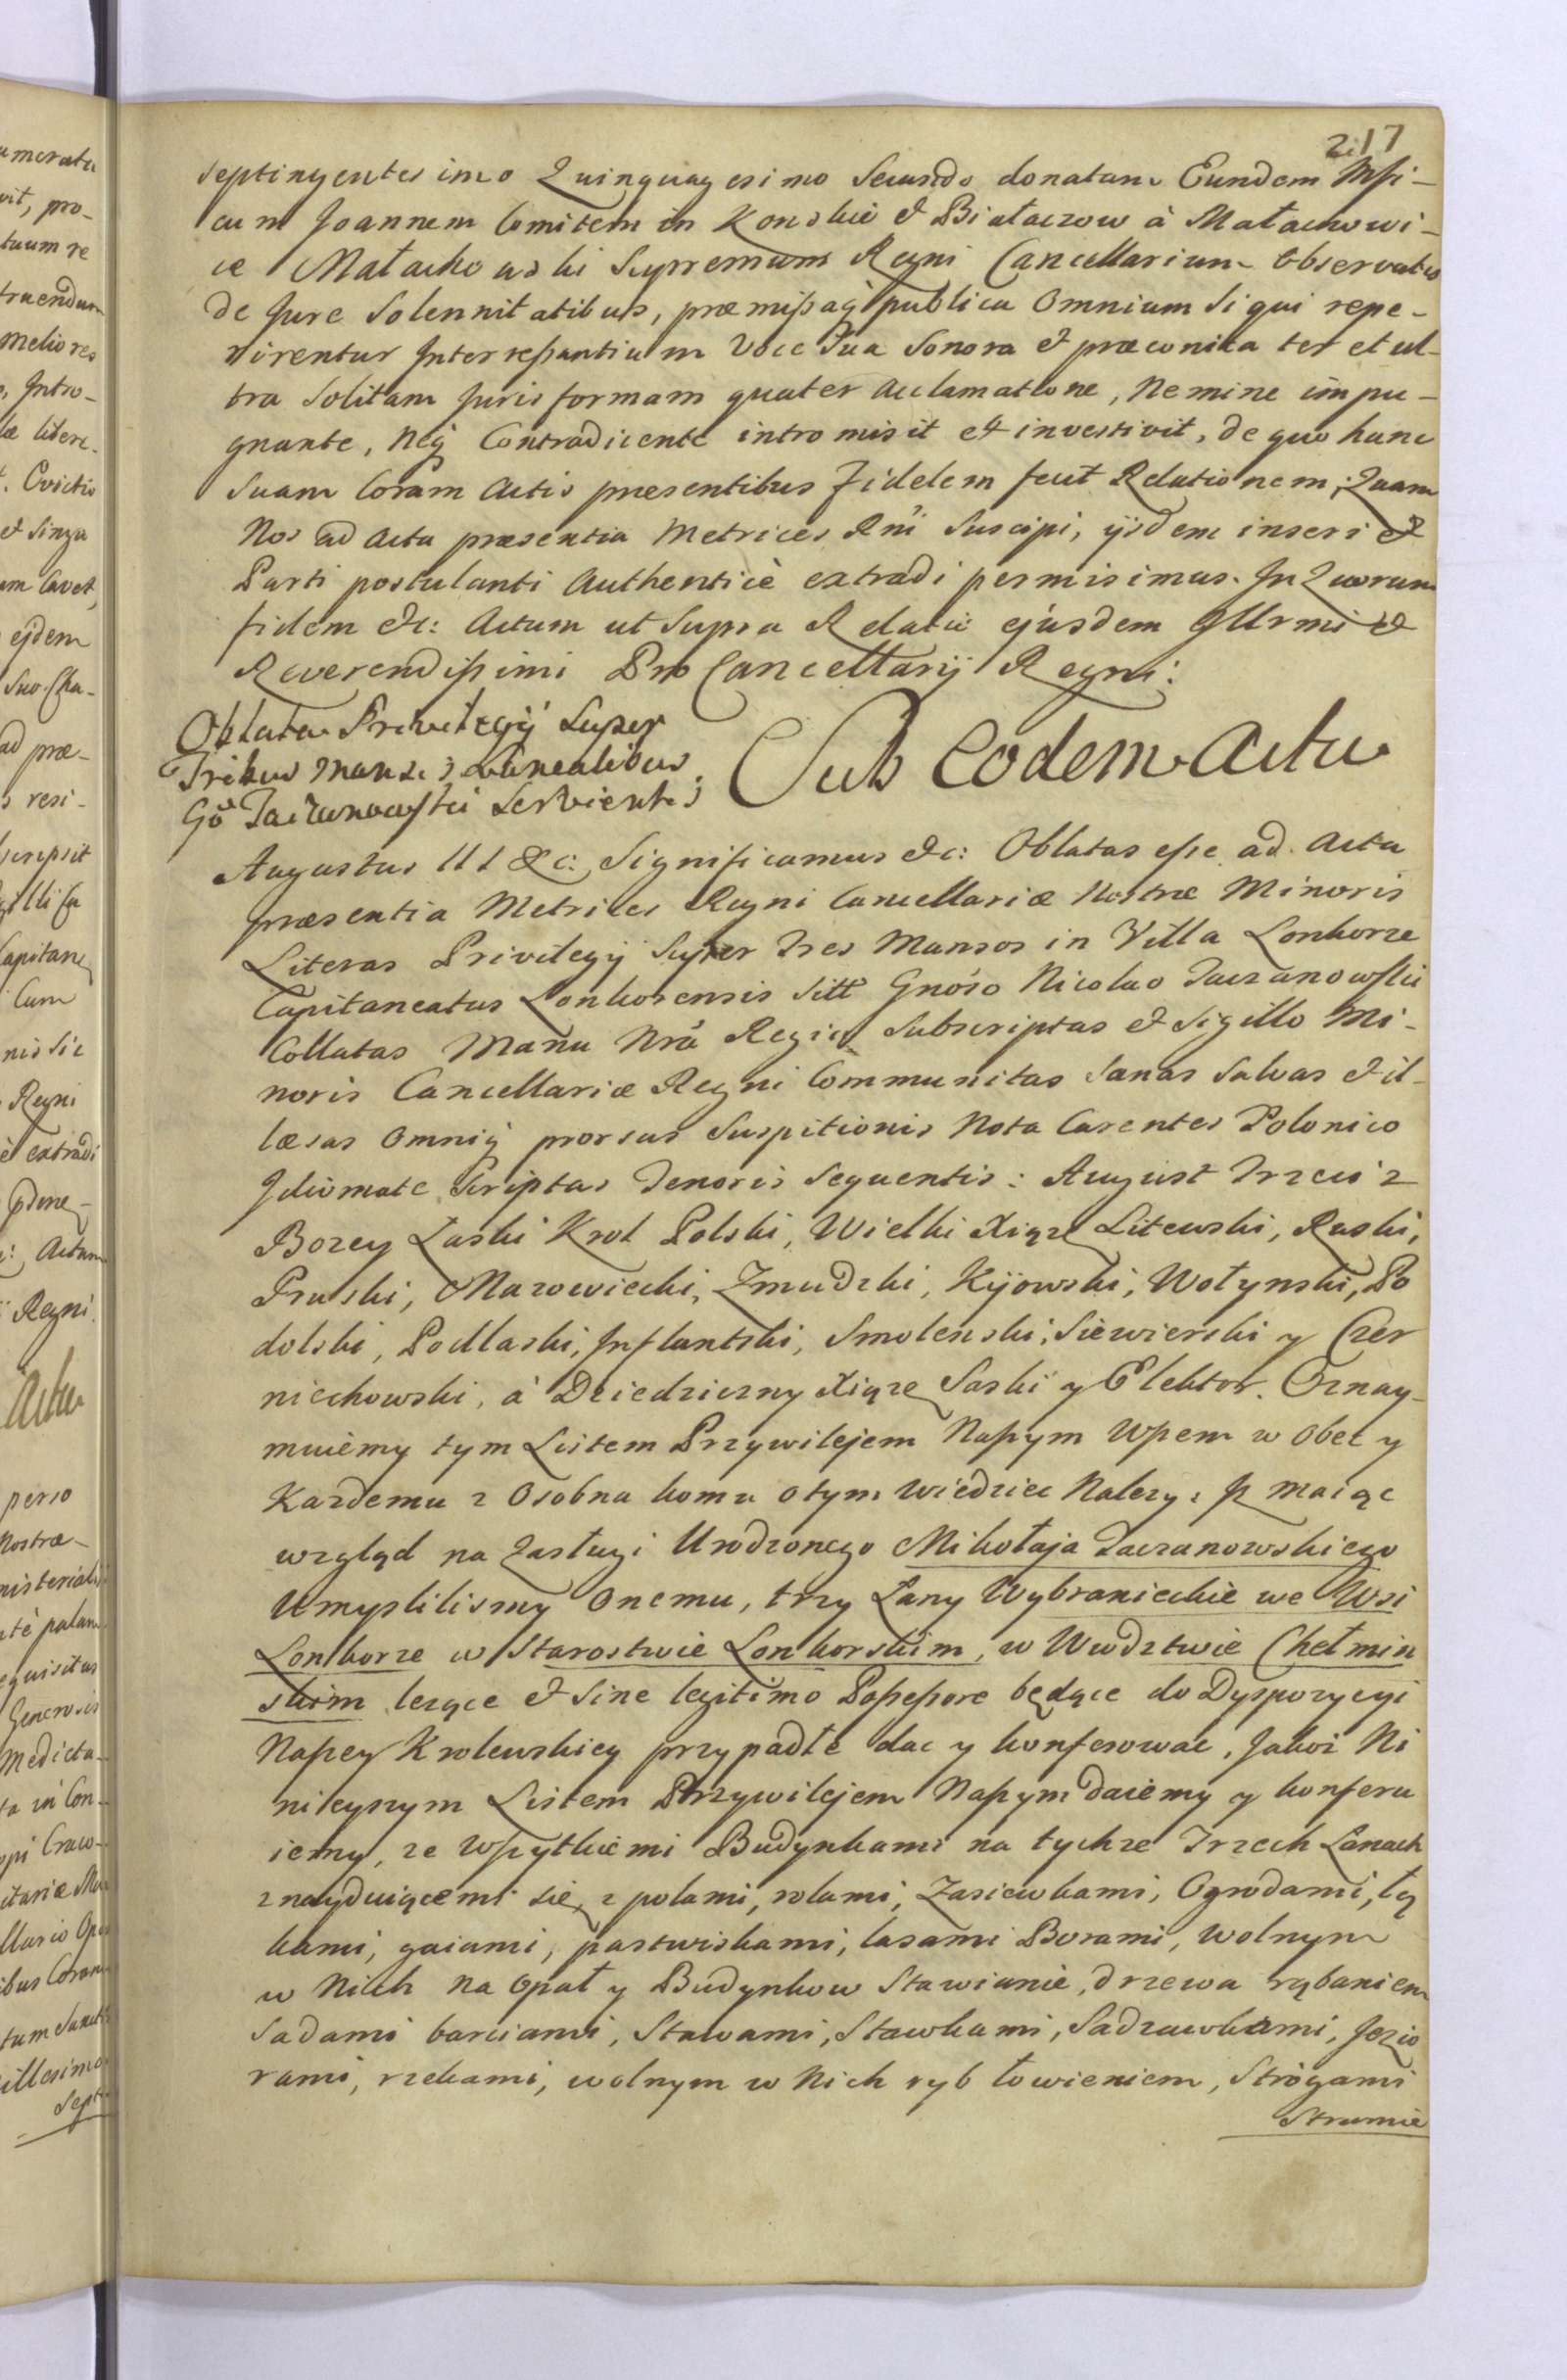 217
septingentesimo Quinquagesimo Secundo donatam Eundem Mfi-
cum Joannem Comitem in Konskie & Białaczow à Małachowi-
ce Małachowski Supremum Regni Cancellarium Observatis
de Jure Solennitatibus, præmißaq publica Omnium si qui repe-
rirentur Interreßantium Voce Sua Sonora & præconica ter et ul-
tra Solitam Juris formam quater acclamatione, Nemine impu-
gnante, Neq Contradicente intromisit et investivit, de quo hanc
Suam Coram Actis præsentibus Fidelem fecit Relationem; Quam
Nos ad Acta præsentia Metrices Rni Suscipi, ijsdem inseri &
Parti postulanti Authenticè extradi permisimus. In Quorum
fidem &c: Actum ut Supra Relatio ejusdem Illrmi &
Reverendißimi Pro Cancellarij Regni:
Oblata Privilegij Super
Tribus Mansis Lanealibus
Gō Taczanowski Servientis
Sub Eodem Actu
Augustus III &c: Significamus &c: Oblatas eße ad Acta
præsentia Metrices Regni Cancellariæ Nostræ Minoris
Literas Privilegij Super Tres Mansos in Villa Lonkorze
Capitaneatus Lonkorensis Sitt Gnoso Nicolao Taczanowski
Collatas Manu Nrâ Regia Subscriptas & Sigillo Mi-
noris Cancellariæ Regni Communitas Sanas Salvas & il-
læsas Omniq prorsus Suspitionis Nota Carentes Polonico
Idiomate Scriptas Tenoris Sequentis: August Trzeci z
Bozey Łaski Krol Polski, Wielki Xiąze Litewski, Ruski,
Pruski, Mazowiecki, Zmudzki, Kijowski, Wołynski, Po
dolski, Podlaski, Inflantski, Smolenski, Siewierski y Czer
niechowski, á Dziedziczny Xiąze Saski y Elektor. Oznay-
muiemy tym Listem Przywilejem Naßym Wßem w Obec y
Kazdemu z Osobna komu o tym Wiedziec Nalezy: Jz maiąc
wzgląd na Zasługi Urodzonego Mikołaja Taczanowskiego
Umyslilismy Onemu, trzy Łany Wybranieckie we Wsi
Lonkorze w Starostwie Lonkorskim, w Wwdztwie Chełmin
skim lezące & Sine legitimo Poßeßore będące do Dyspozycyi
Naßey Krolewskiey przypadłe dac y konferowac, Jakoz Ni
nieyszym Listem Przywilejem Naßym daiemy y konferu
iemy, ze Wßytkiemi Budynkami na tychze Trzech Łanach
znayduiącemi się, z polami, rolami, Zasiewkami, Ogrodami, łą
kami, gaiami, pastwiskami, lasami Borami, wolnym
w Nich na Opał y Budynkow Stawianie, drzewa rąbaniem
Sadami barciami, Stawami, Stawkami, Sadzawkami, Jezio
rami, rzekami, wolnym w Nich ryb łowieniem, Strugami
Strumie